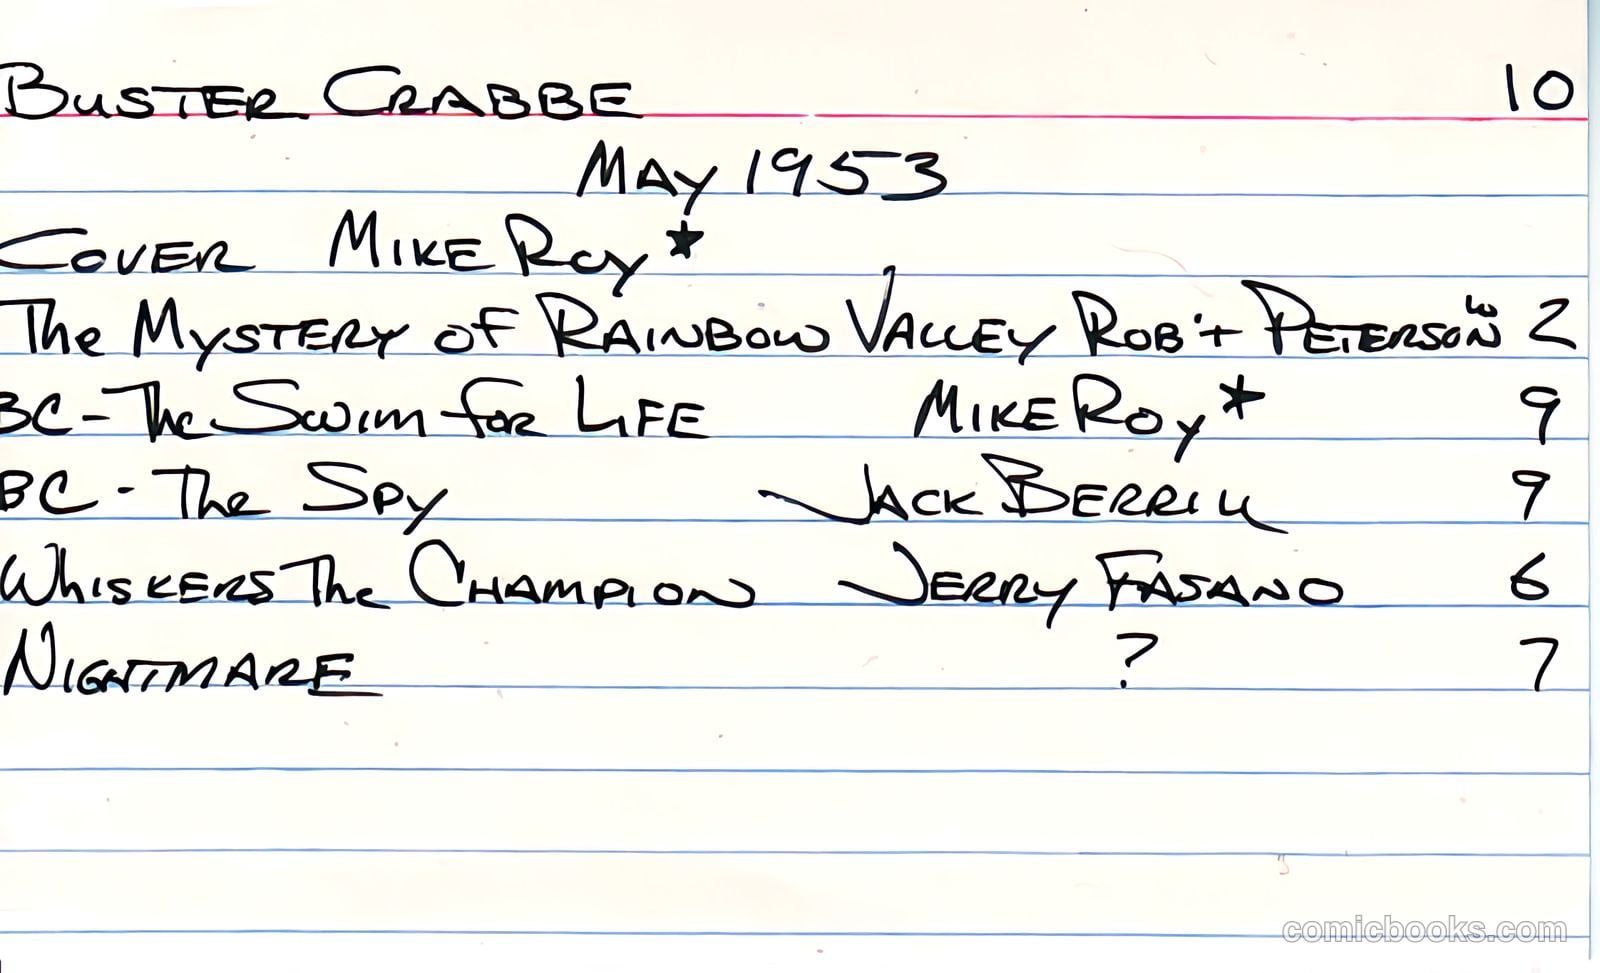 BUSTER CRABBE 10
MAY 1953
COVER MIKE ROY★
The MYSTERY OF RAINBOW VALLEY ROB'T PETERSON w 2
BC - The SWIM for LIFE MIKE ROY★ 9
BC - The SPY JACK BERRILL 9
WHISKERS The CHAMPION JERRY FASANO 6
NIGHTMARE ? 7
comicbooks.com